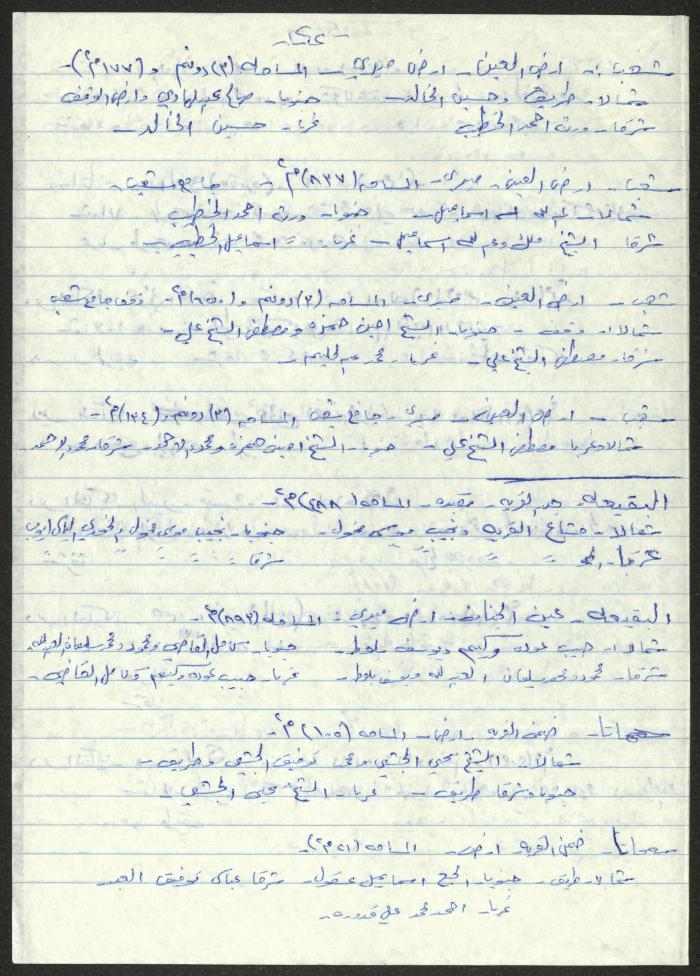 شعب :- ارض العين - ارض ميري - المساحه (٣) دونم و (١٧٧م٢)-
شمالا - طريق وحسين الخالد - جنوبا - صالح عبد الهادي وارض الوقف
شرقا - ورثة احمد الخطيب غربا - حسين الخالد -
شعب - ارض العين - ميري - المساحه (٨٣٧)م٢ - جامع شعب -
شمالا اسماعيل - جنوبا - ورثة احمد الخطيب
شرقا الشيخ اسماعيل - غربا - اسماعيل الخطيب -
شعب - ارض العين - ميري - المساحه (٣) دونم و م٢ - وقف جامع شعب
شمالا - وقف - جنوبا - الشيخ امين حمزه ومصطفى الشيخ علي -
شرقا - مصطفى الشيخ علي - غربا - محمد عبد الحليم -
شعب - ارض العين - ميري - جامع شعب المساحه (٣) دونم و (١٣٤)م٢ -
شمالا وغربا مصطفى الشيخ علي - جنوبا - الشيخ امين حمزه ومحمود الاحمد - شرقا - محمود الاحمد
البقيعه - القريه - مقبره - المساحه (٤٨٨)م٢ -
شمالا - مشاع القريه ونجيب موسى مخول - جنوبا - نجيب موسى مخول والخوري
غربا - شرقا - = = =
البقيعه - عين - ارض ميري - المساحه (٨٩٣)م٢ -
شمالا - حبيب عوده وكليم ويوسف بلوط - جنوبا - كامل القاضي ومحمود ومحمد سليمان العبد الله
شرقا - محمود ومحمد سليمان العبد الله ويوسف بلوط - غربا - حبيب عوده وكليم وكامل القاضي -
سحماتا - ضمن القريه - ارض - المساحه (١٠٥)م٢ -
شمالا - الشيخ يحيى الجشي توفيق الجشي وطريق -
جنوبا وشرقا طريق - غربا - الشيخ يحيى الجشي -
سحماتا - ضمن القريه ارض - المساحه -
شمالا - طريق - جنوبا - الحج اسماعيل - شرقا عباس توفيق العبد
غربا - احمد محمد علي قدوره -